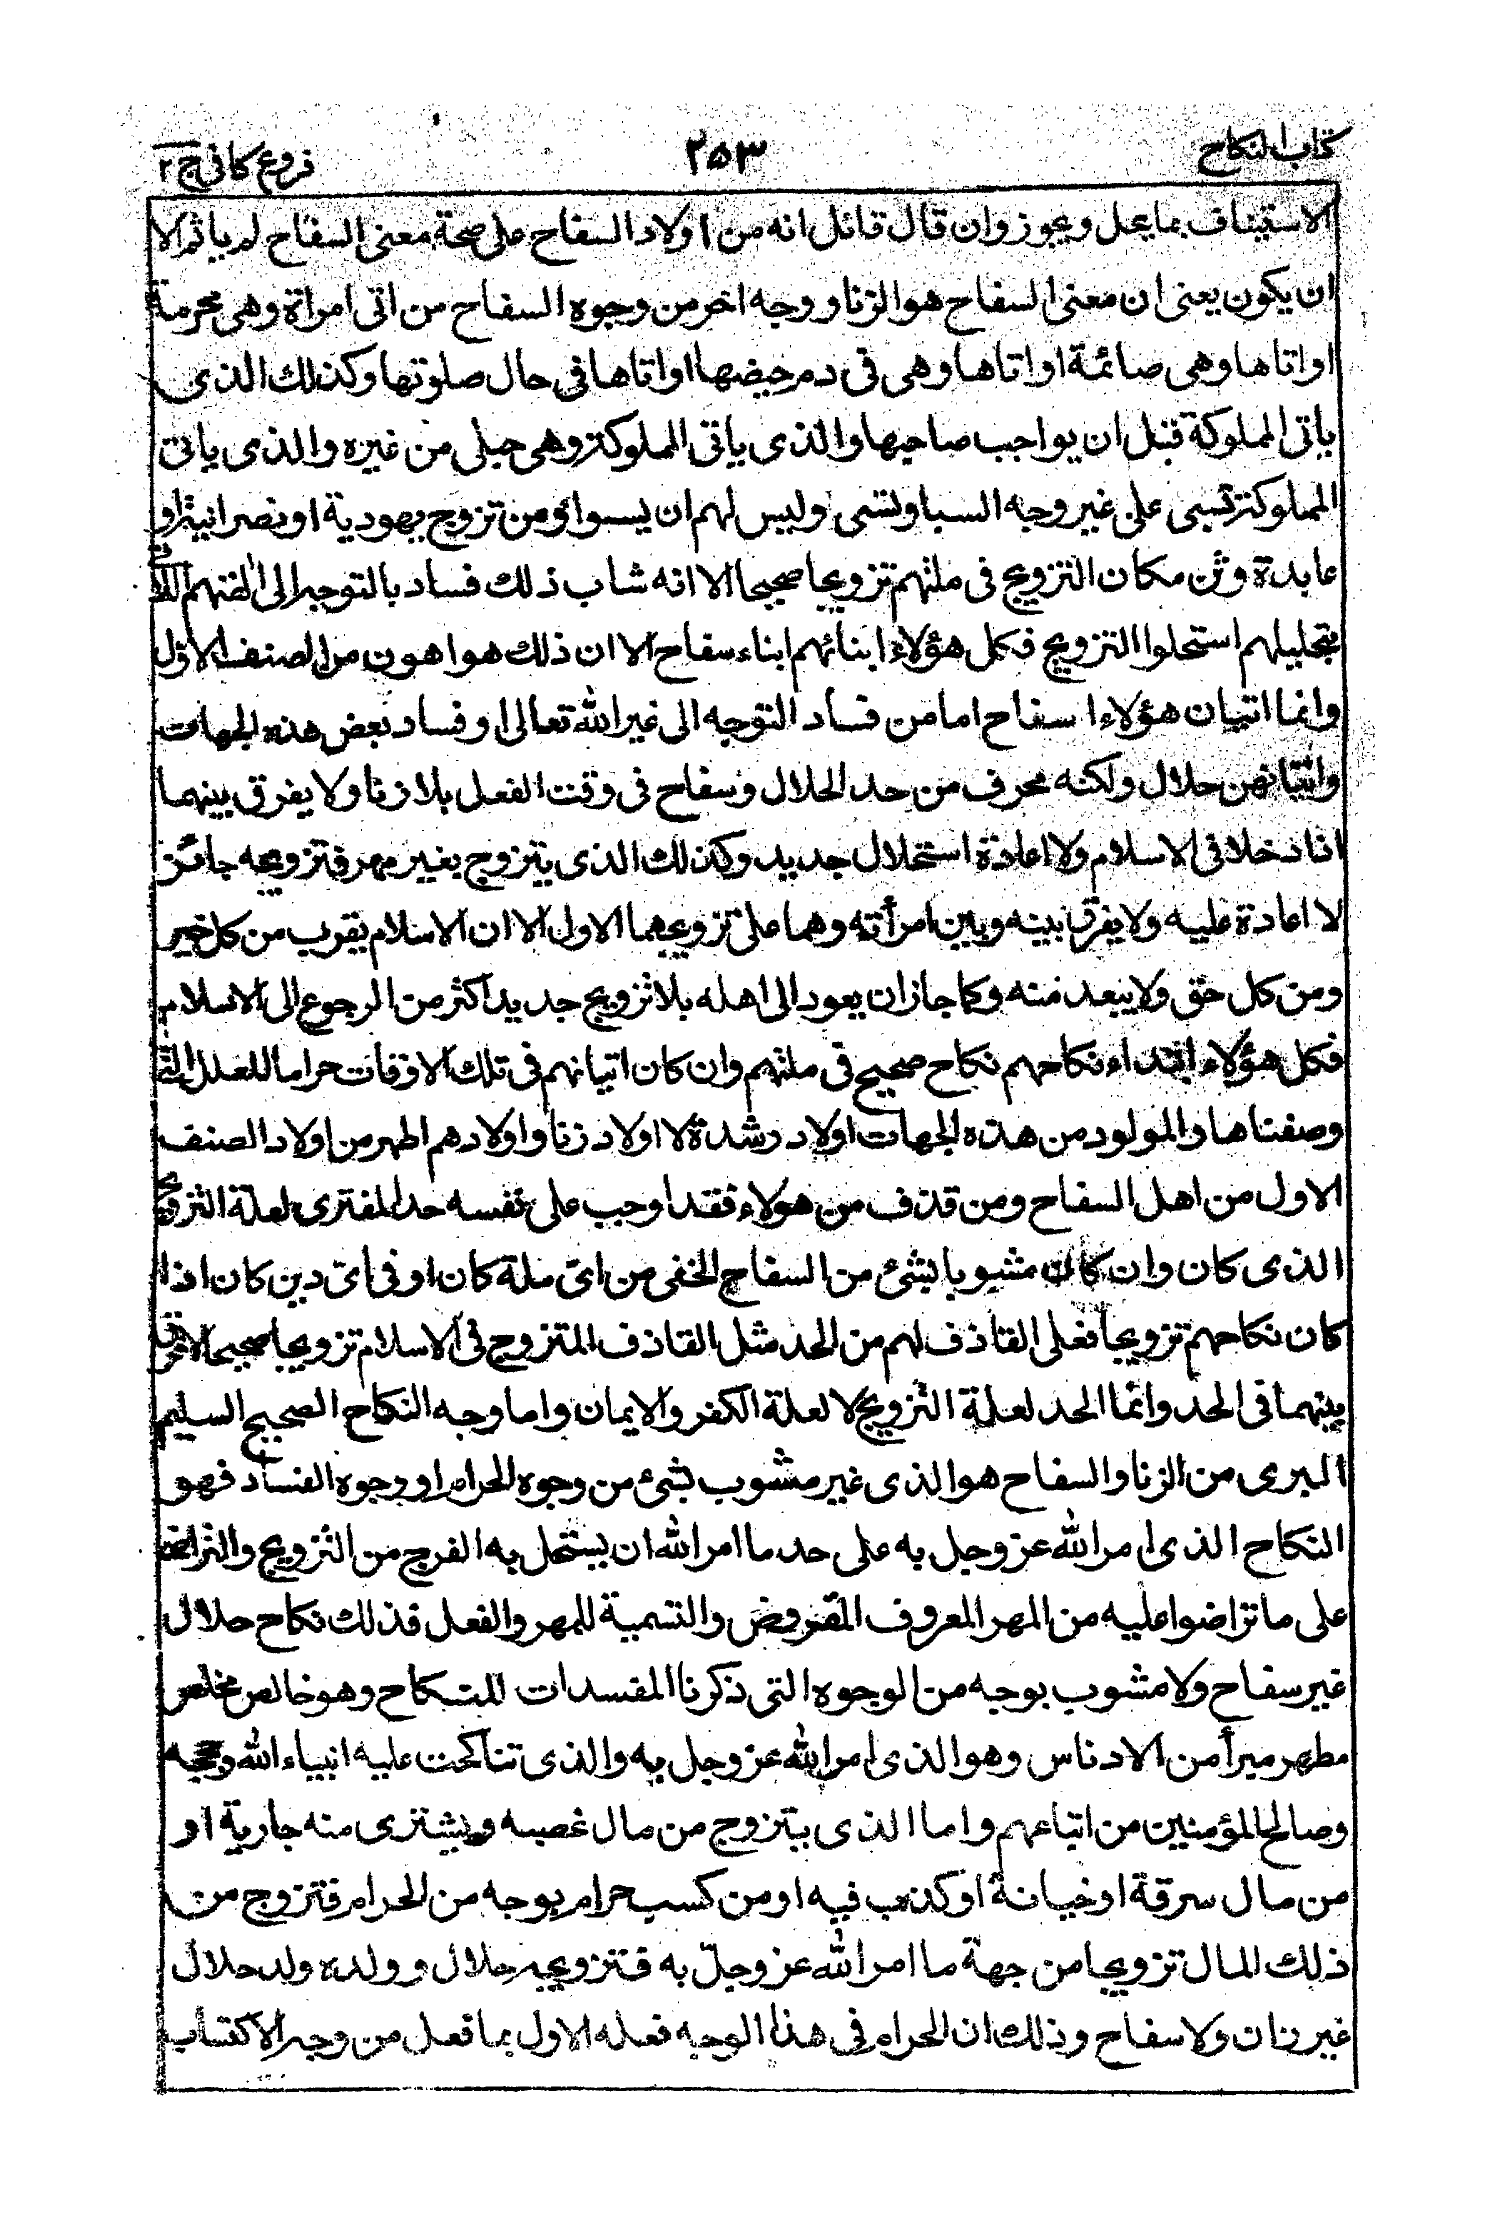 كتاب النكاح
٢٥٣
فروع كافى ج ٢
الاستيناف بما يحل ويجوز وان قال قائل انه من اولاد السفاح على صحة معنى السفاح لم ياثم الا
ان يكون يعنى ان معنى السفاح هو الزنا ووجه اخر من وجوه السفاح من اتى امراة وهى محرمة
او اتاها وهى صائمة او اتاها وهى فى دم حيضها او اتاها فى حال صلوتها وكذلك الذى
ياتى المملوكة قبل ان يواجب صاحبها والذى ياتى المملوكة وهى حبلى من غيره والذى ياتى
المملوكة تسبى على غير وجه السبا وتسبى وليس لهم ان يسبوا ومن تزوج يهودية او نصرانية او
عابدة وثن مكان التزويج فى ملتهم تزويجا صحيحا الا انه شاب ذلك فساد بالتوجه الى الهتهم اللاتى
بتحليلهم استحلوا التزويج فكل هؤلاء ابنائهم ابناء سفاح الا ان ذلك هو اهون من الصنف الاول
وانما اتيان هؤلاء السفاح اما من فساد التوجه الى غير الله تعالى او فساد بعض هذه الجهات
واتيانهن حلال ولكنه محرف من حد الحلال وسفاح فى وقت الفعل بلا زنا ولا يفرق بينهما
اذا دخلا فى الاسلام ولا اعادة استحلال جديد وكذلك الذى يتزوج بغير مهر فتزويجه جائز
لا اعادة عليه ولا يفرق بينه وبين امرأته وهما على تزويجهما الاول الا ان الاسلام يقرب من كل خير
ومن كل حق ولا يبعد منه وكما جاز ان يعود الى اهله بلا تزويج جديد اكثر من الرجوع الى الاسلام
فكل هؤلاء ابتداء نكاحهم نكاح صحيح فى ملتهم وان كان اتيانهم فى تلك الاوقات حراما للعلل التى
وصفناها والمولود من هذه الجهات اولاد رشدة لا اولاد زنا واولادهم اطهر من اولاد الصنف
الاول من اهل السفاح ومن قذف من هولاء فقد اوجب على نفسه حد المفترى لعلة التزويج
الذى كان وان كان مشوبا بشئ من السفاح الخفى من اىّ ملة كان او فى اىّ دين كان اذا
كان نكاحهم تزويجا فعلى القاذف لهم من الحد مثل القاذف للمتزوج فى الاسلام تزويجا صحيحا لا فرق
بينهما فى الحد وانما الحد لعلة التزويج لا لعلة الكفر والايمان واما وجه النكاح الصحيح السليم
البرى من الزنا والسفاح هو الذى غير مشوب بشئ من وجوه الحرام او وجوه الفساد فهو
النكاح الذى امر الله عز وجل به على حد ما امر الله ان يستحل به الفرج من التزويج والتراضى
على ما تراضوا عليه من المهر المعروف المفروض والتسمية للمهر والفعل فذلك نكاح حلال
غير سفاح ولا مشوب بوجه من الوجوه التى ذكرنا المفسدات للنكاح وهو خالص مخلص
مطهر مبرأ من الادناس وهو الذى امر الله عز وجل به والذى تناكحت عليه انبياء الله وحججه
وصالح المؤمنين من اتباعهم واما الذى يتزوج من مال غصبه ويشترى منه جارية او
من مال سرقة او خيانة او كذب فيه او من كسب حرام بوجه من الحرام فتزوج من
ذلك المال تزويجا من جهة ما امر الله عز وجلّ به فتزويجه حلال وولده ولد حلال
غير زان ولا سفاح وذلك ان الحرام فى هذا الوجه فعله الاول بما فعل من وجه الاكتساب